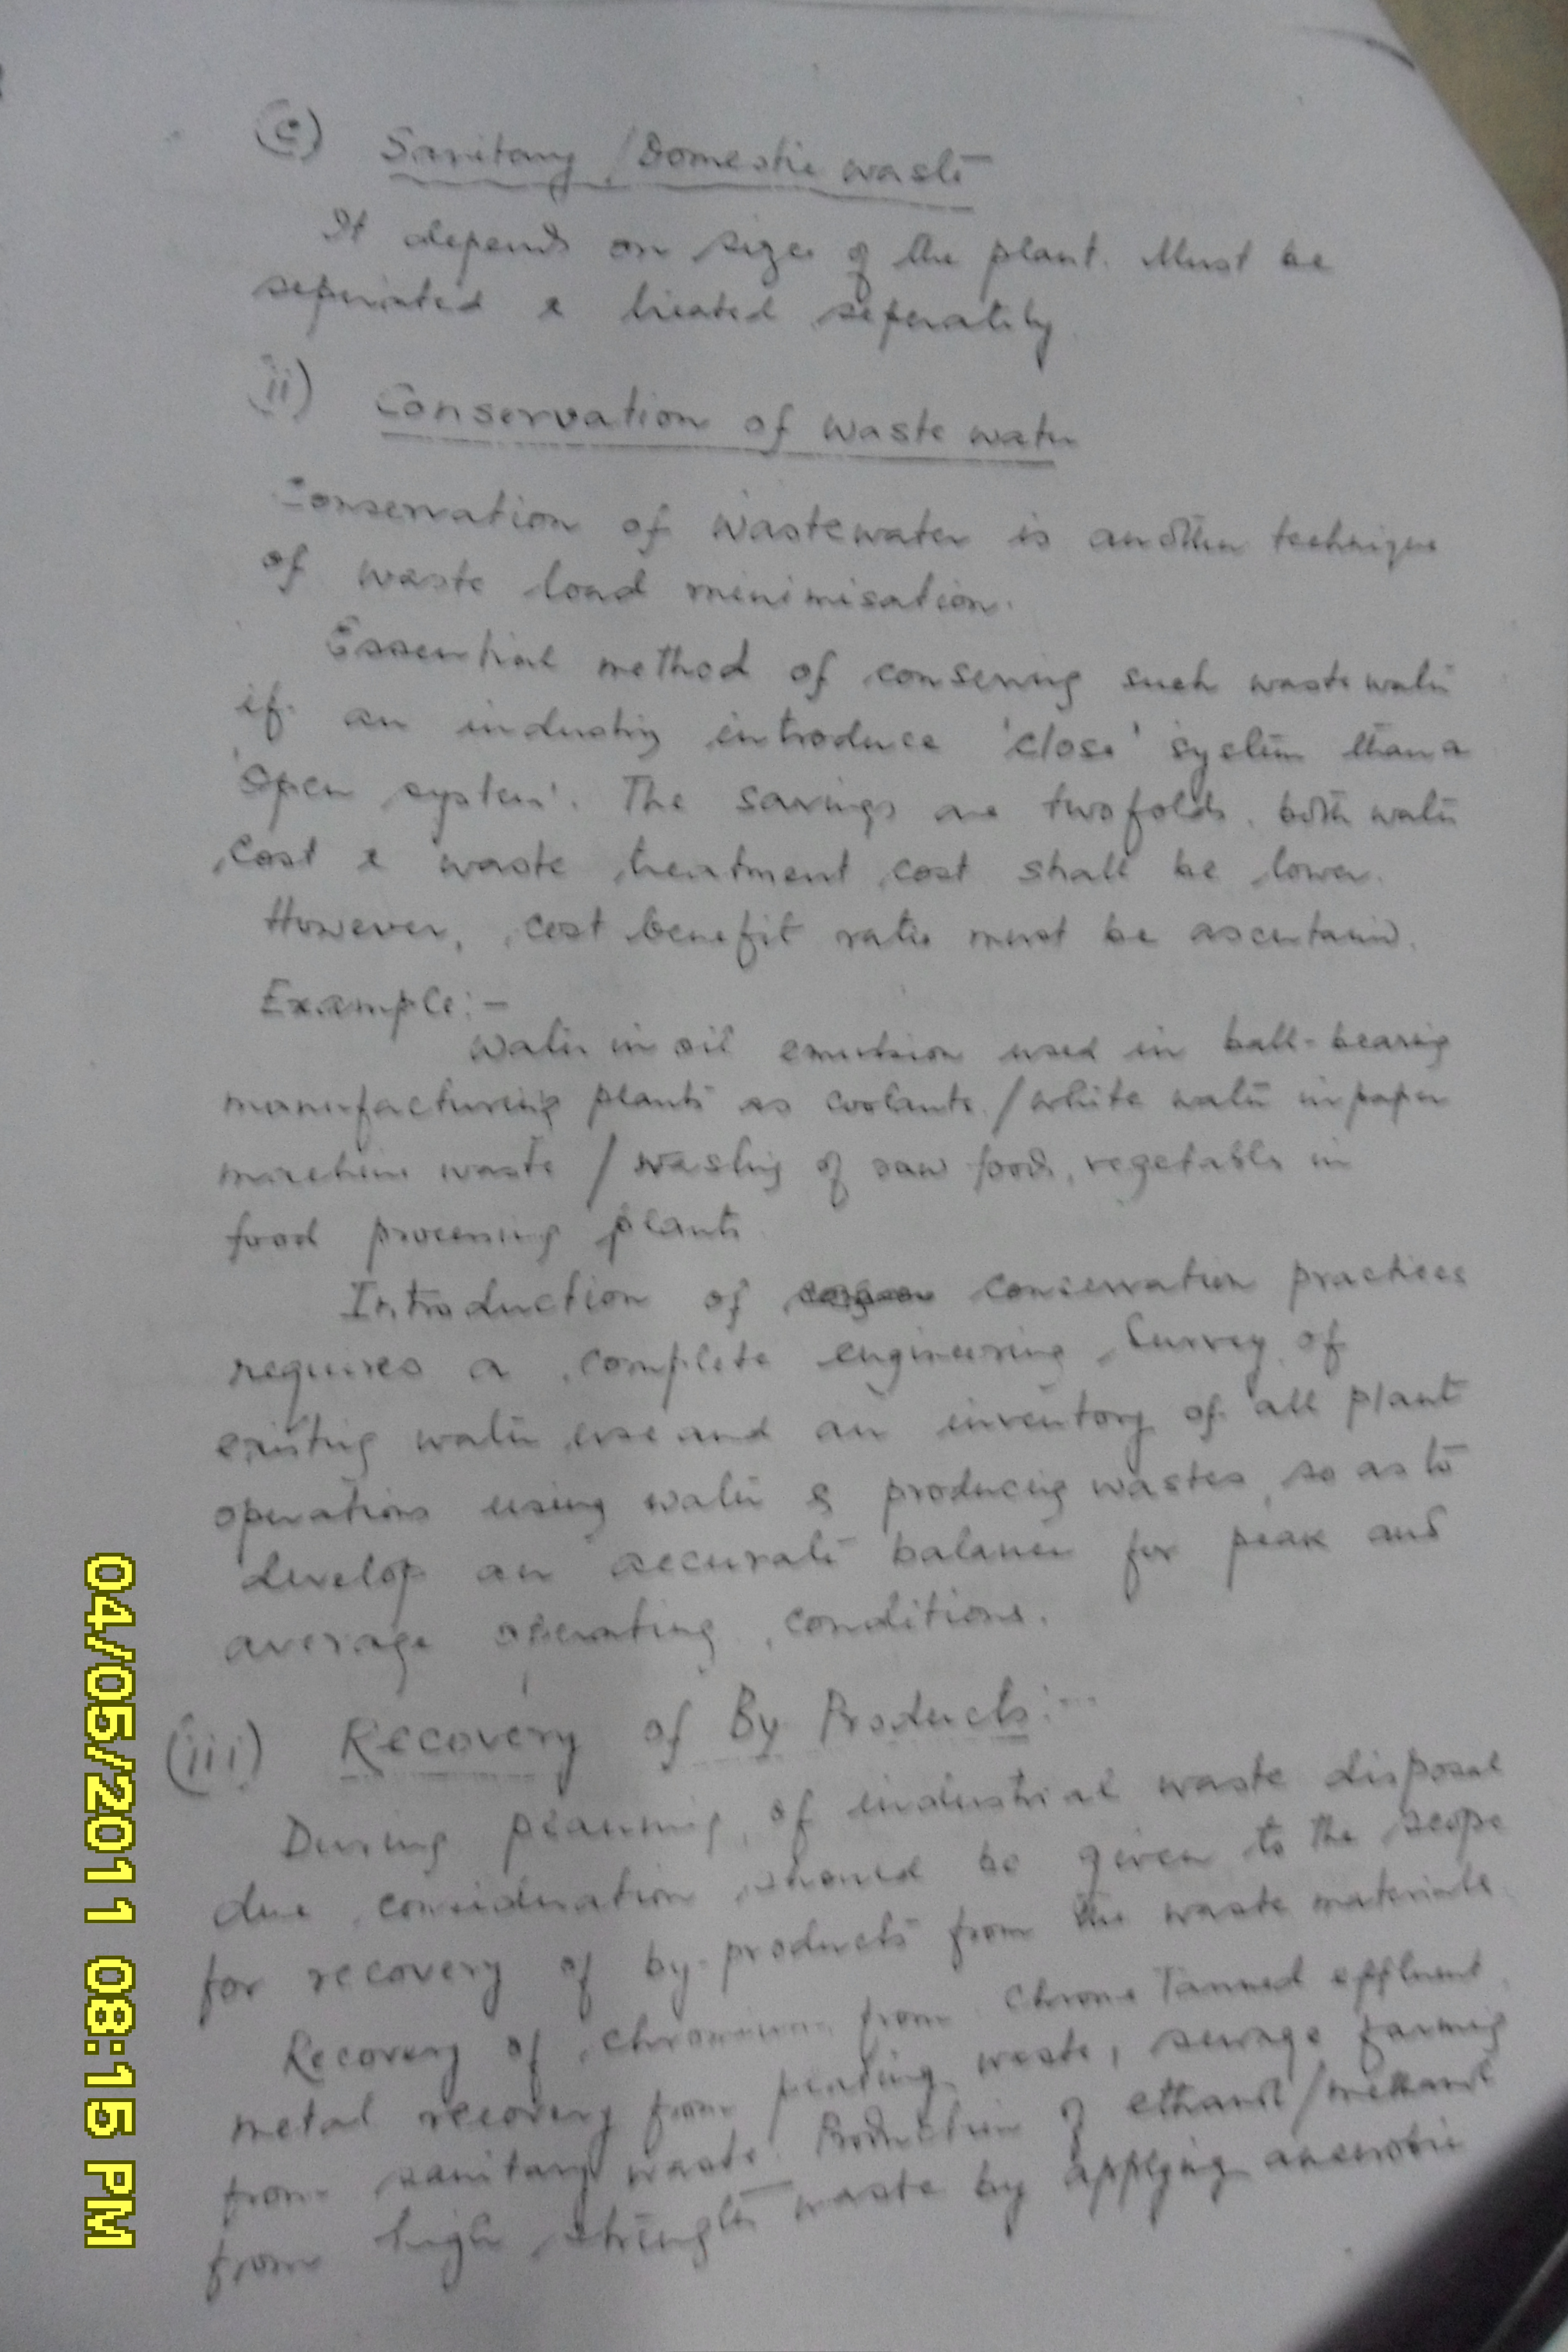 (c) Sanitary / Domestic waste
It depends on size of the plant. Must be
seperated & treated seperately
(ii) Conservation of waste water
Conservation of wastewater is another technique
of waste load minimisation.
Essential method of conserving such waste water
if an industry introduce 'close' system than a
'open system'. The savings are twofolds. both water
cost & waste treatment cost shall be lower.
However, cost benefit ratio must be ascertained.
Example:-
Water in oil emulsion used in ball-bearing
manufacturing plants as coolants / white water in paper
machine waste / washing of raw foods, vegetables in
food processing plants
Introduction of conservation practices
requires a complete engineering survey of
existing water use and an inventory of all plant
operations using water & producing wastes, so as to
develop an accurate balance for peak and
average operating conditions.
(iii) Recovery of By Products:--
During planning of industrial waste disposal
due consideration should be given to the scope
for recovery of by-products from the waste materials.
Recovery of chromium from Chrome Tanned effluent,
metal recovery from plating waste, sewage farming
from sanitary waste. Production of ethanol/methanol
from high strength waste by applying anerobic
04/05/2011 08:15 PM